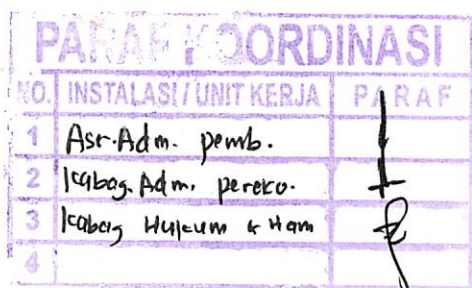 PARAF KOORDINASI
NO. INSTALASI / UNIT KERJA PARAF
1 Asr. Adm. pemb.
2 Kabag. Adm. pereko.
3 Kabag Hukum & Ham
4